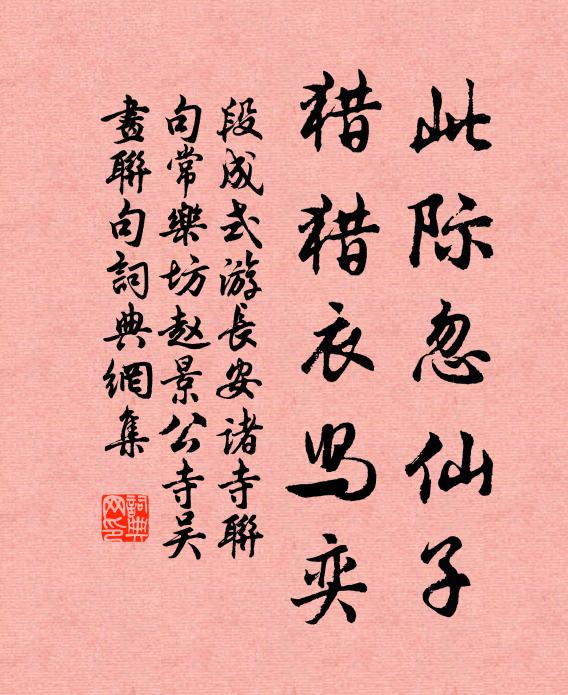 此际忽仙子
猎猎衣舄奕
段成式游長安诸寺聯
句常樂坊赵景公寺吴
畫聯句詞典網集
詞典网印